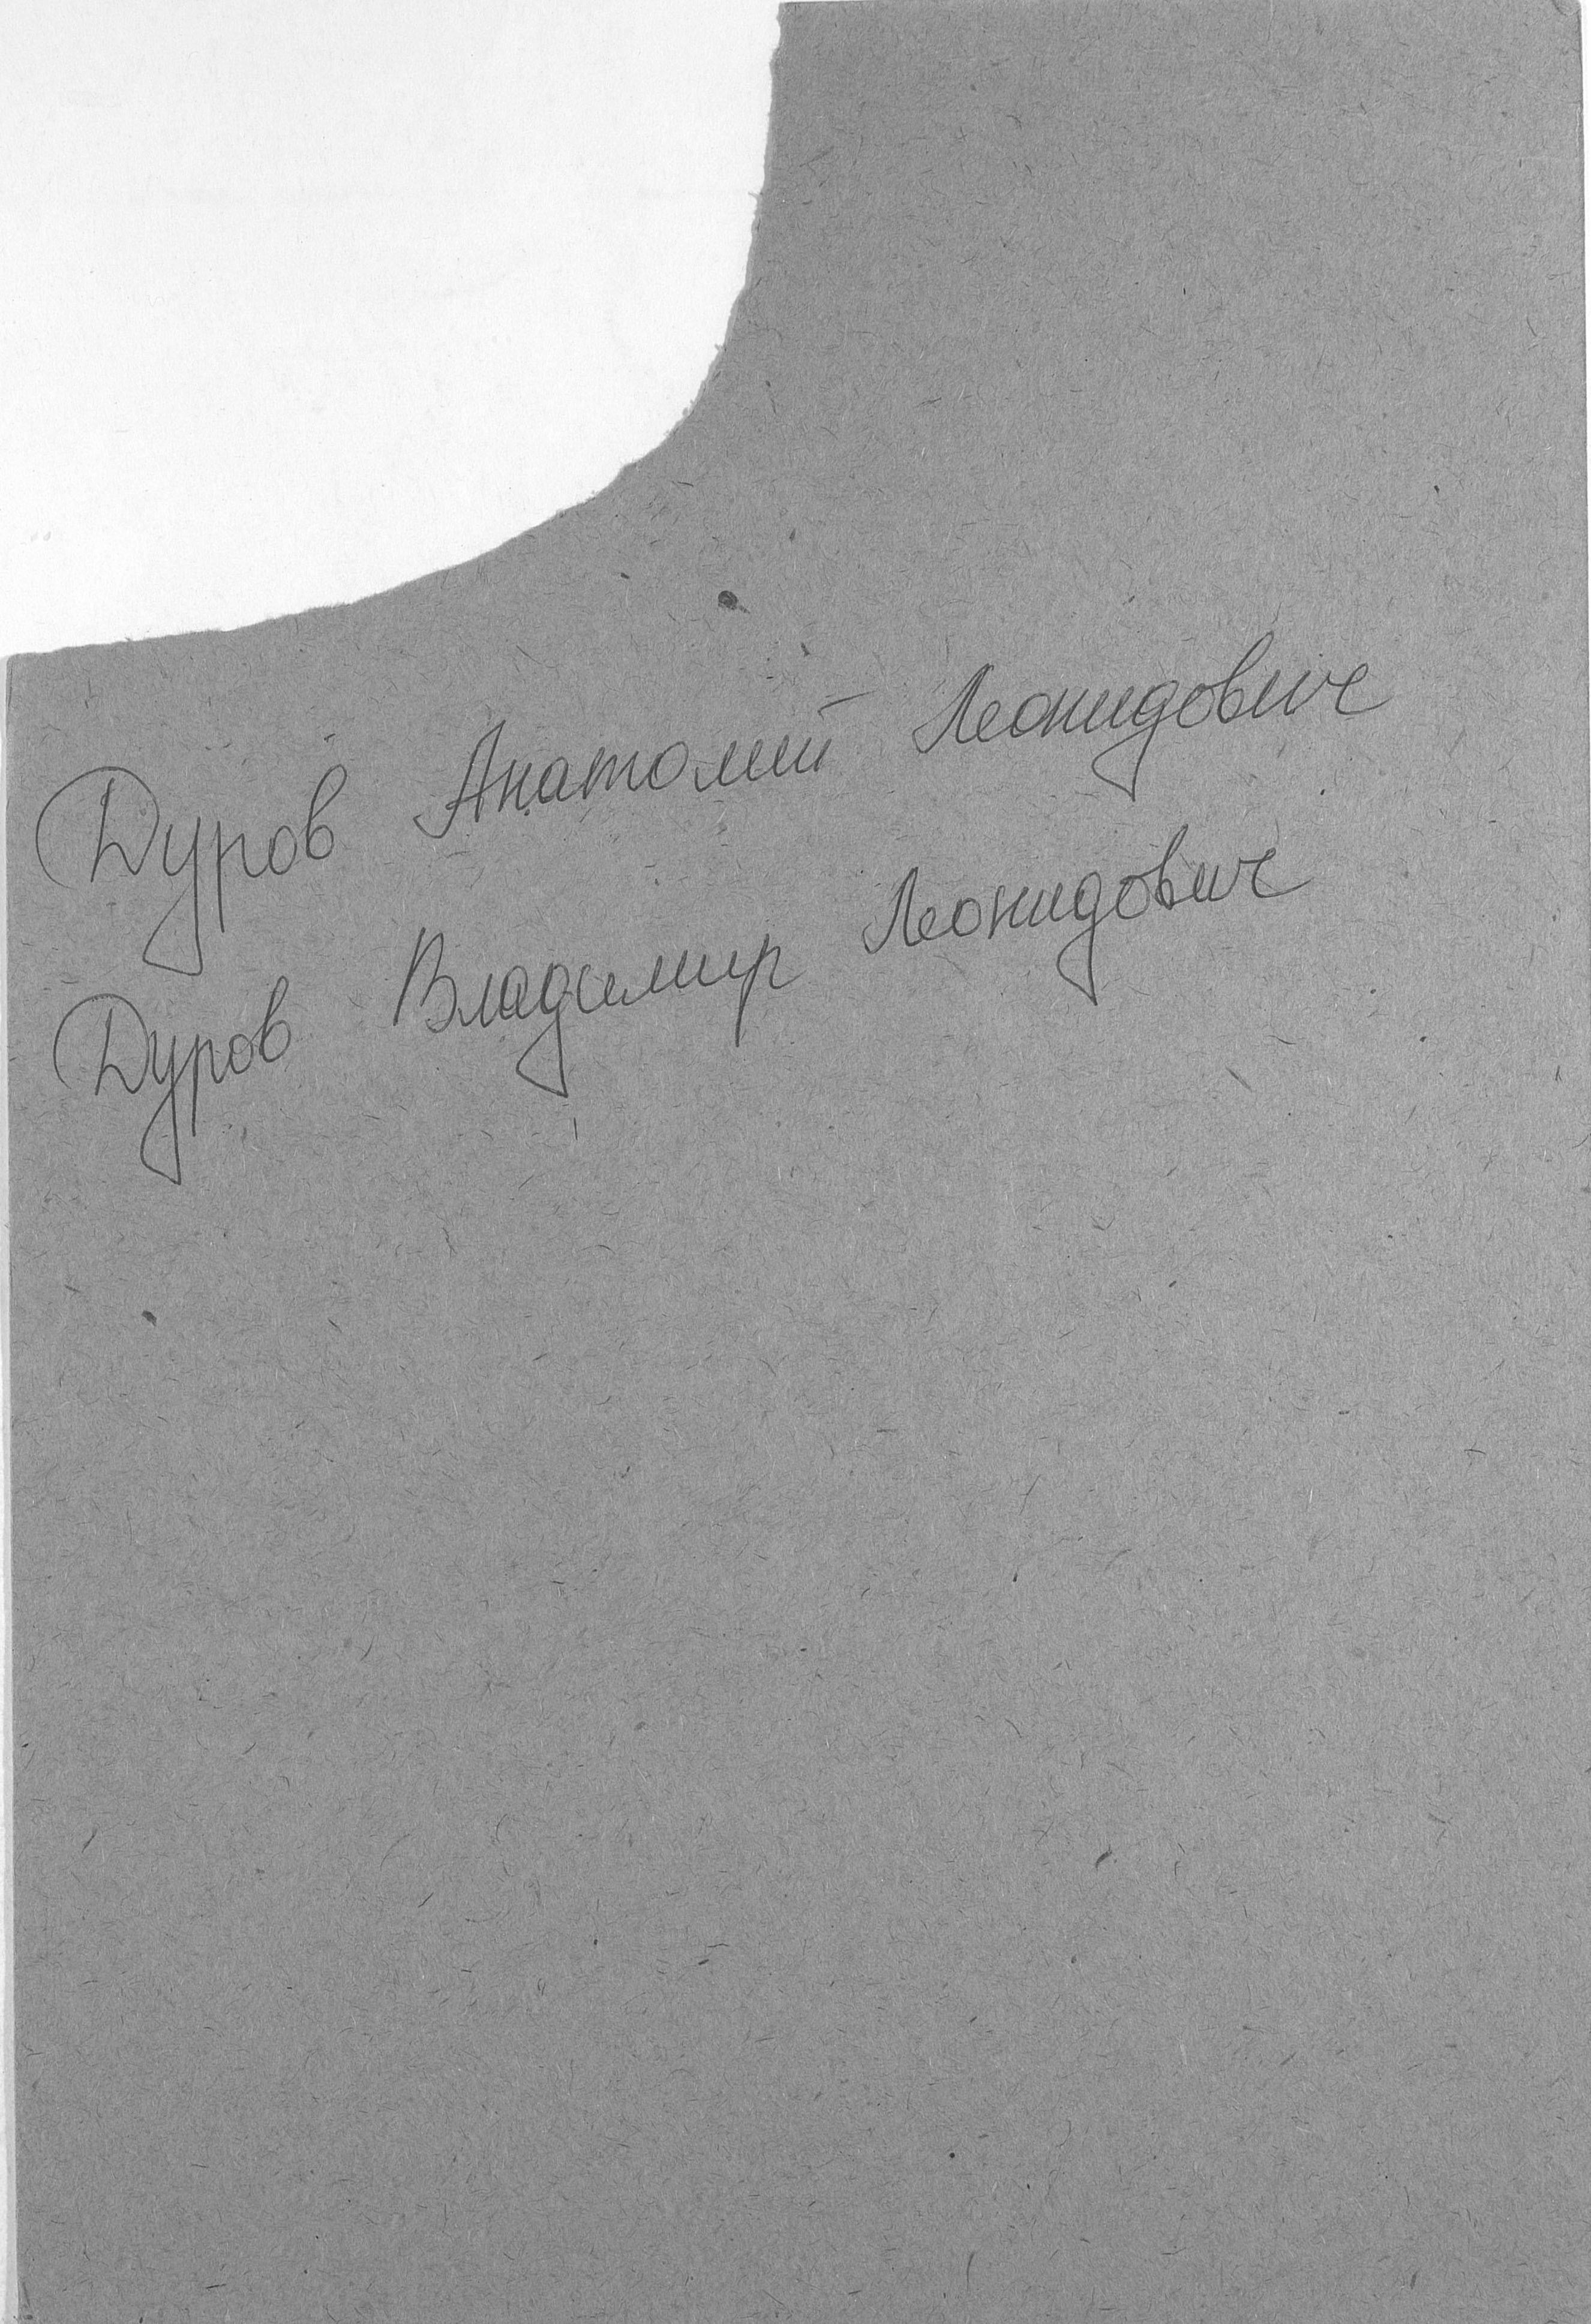 Дуров Анатолий Леонидович
Дуров Владимир Леонидович